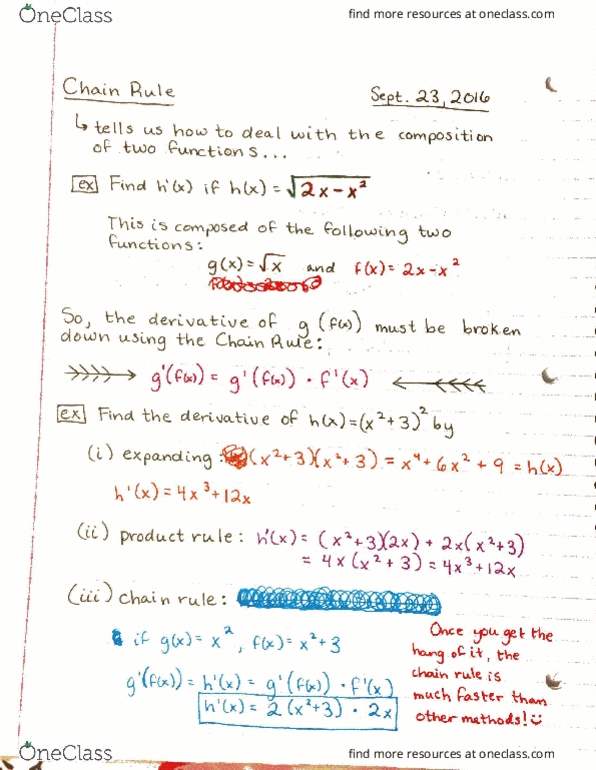 OneClass
find more resources at oneclass.com
Chain Rule
Sept. 23, 2016
↳ tells us how to deal with the composition
of two functions...
ex Find h'(x) if h(x) = √(2x-x²)
This is composed of the following two
functions:
g(x) = √x and f(x) = 2x-x²
So, the derivative of g(f(x)) must be broken
down using the Chain Rule:
g'(f(x)) = g'(f(x)) · f'(x)
ex Find the derivative of h(x)=(x²+3)² by
(i) expanding: (x²+3)(x²+3) = x⁴+6x²+9 = h(x)
h'(x) = 4x³+12x
(ii) product rule: h'(x) = (x²+3)(2x) + 2x(x²+3)
= 4x(x²+3) = 4x³+12x
(iii) chain rule:
if g(x) = x², f(x) = x²+3
g'(f(x)) = h'(x) = g'(f(x)) · f'(x)
h'(x) = 2(x²+3) · 2x
Once you get the
hang of it, the
chain rule is
much faster than
other methods!
OneClass
find more resources at oneclass.com